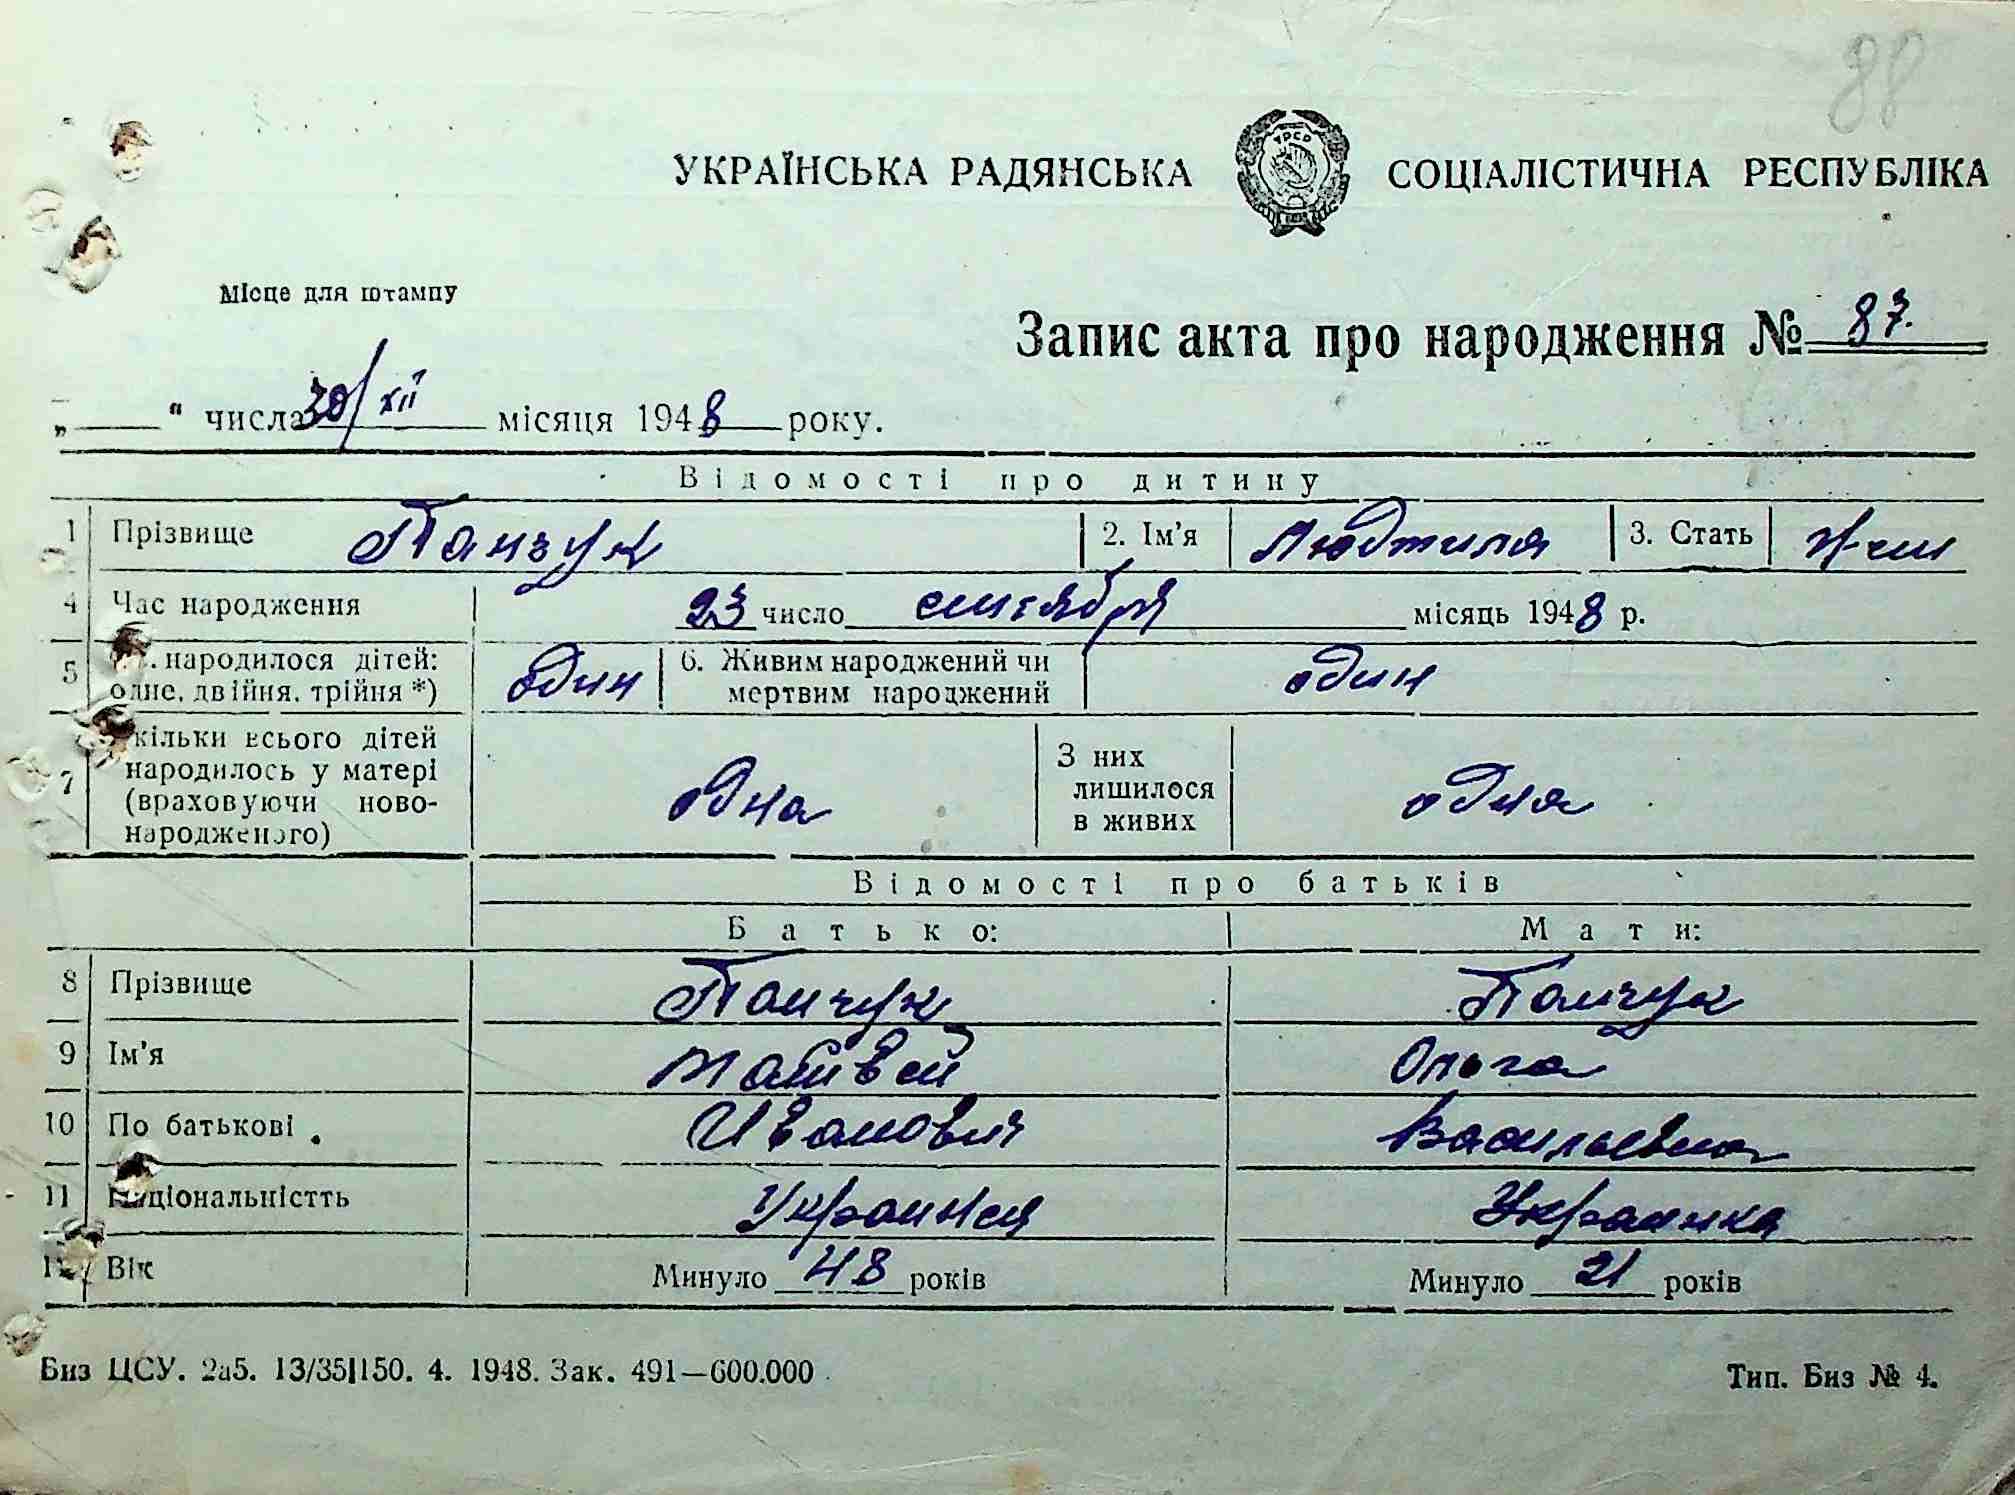 88
УКРАЇНСЬКА РАДЯНСЬКА СОЦІАЛІСТИЧНА РЕСПУБЛІКА
УРСР
Місце для штампу
Запис акта про народження № 87.
„ “ числа 30/XII місяця 1948 року.
Відомості про дитину
1 Прізвище Панчук 2. Ім'я Людмила 3. Стать
4 Час народження 23 число сентября місяць 1948 р.
5 народилося дітей: один 6. Живим народжений чи один
одне, двійня, трійня *) мертвим народжений
7 кільки всього дітей народилось у матері (враховуючи ново-народженого) одна З них лишилося в живих одна
Відомості про батьків
Батько: Мати:
8 Прізвище Панчук Панчук
9 Ім'я Матвей Ольга
10 По батькові Иванович Васильевна
11 Національністть Украинец Украинка
12 Вік Минуло 48 років Минуло 21 років
Биз ЦСУ. 2а5. 13/35|150. 4. 1948. Зак. 491—600.000 Тип. Биз № 4.